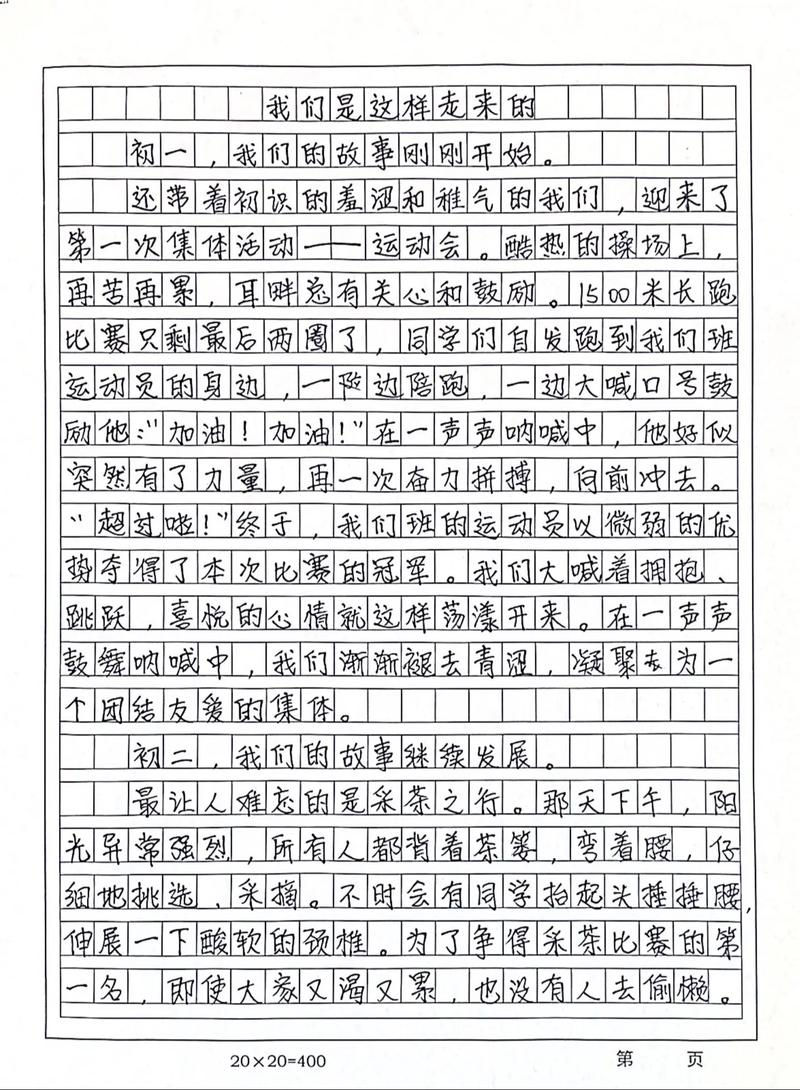 我们是这样走来的
初一，我们的故事刚刚开始。
还带着初识的羞涩和稚气的我们，迎来了
第一次集体活动——运动会。酷热的操场上，
再苦再累，耳畔总有关心和鼓励。1500米长跑
比赛只剩最后两圈了，同学们自发跑到我们班
运动员的身边，一边陪跑，一边大喊口号鼓
励他：“加油！加油！”在一声声呐喊中，他好似
突然有了力量，再一次奋力拼搏，向前冲去。
“超过啦！”终于，我们班的运动员以微弱的优
势夺得了本次比赛的冠军。我们大喊着拥抱、
跳跃，喜悦的心情就这样荡漾开来。在一声声
鼓舞呐喊中，我们渐渐褪去青涩，凝聚为一
个团结友爱的集体。
初二，我们的故事继续发展。
最让人难忘的是采茶之行。那天下午，阳
光异常强烈，所有人都背着茶篓，弯着腰，仔
细地挑选、采摘。不时会有同学抬起头捶捶腰，
伸展一下酸软的颈椎。为了争得采茶比赛的第
一名，即使大家又渴又累，也没有人去偷懒。
20×20=400
第 页